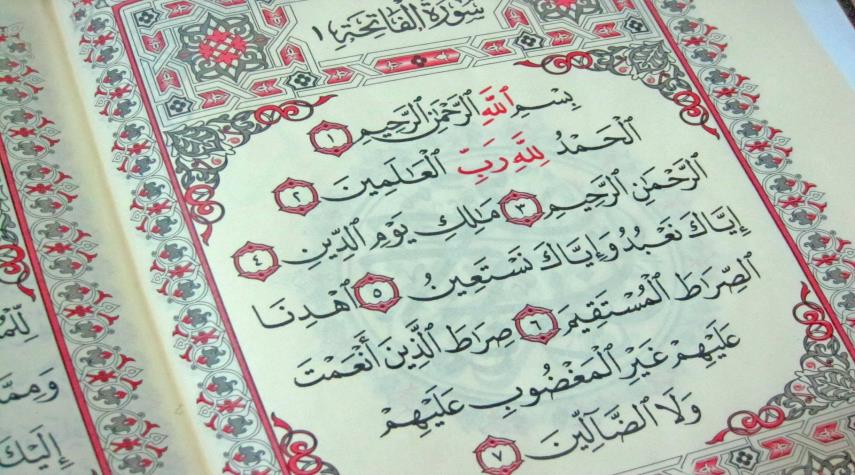 سورة الفاتحة ١
بِسْمِ ٱللَّهِ ٱلرَّحْمَٰنِ ٱلرَّحِيمِ ١
ٱلْحَمْدُ لِلَّهِ رَبِّ ٱلْعَٰلَمِينَ ٢
ٱلرَّحْمَٰنِ ٱلرَّحِيمِ ٣ مَٰلِكِ يَوْمِ ٱلدِّينِ ٤
إِيَّاكَ نَعْبُدُ وَإِيَّاكَ نَسْتَعِينُ ٥ ٱهْدِنَا
ٱلصِّرَٰطَ ٱلْمُسْتَقِيمَ ٦ صِرَٰطَ ٱلَّذِينَ أَنْعَمْتَ
عَلَيْهِمْ غَيْرِ ٱلْمَغْضُوبِ عَلَيْهِمْ
وَلَا ٱلضَّآلِّينَ ٧
إِلَيْكَ